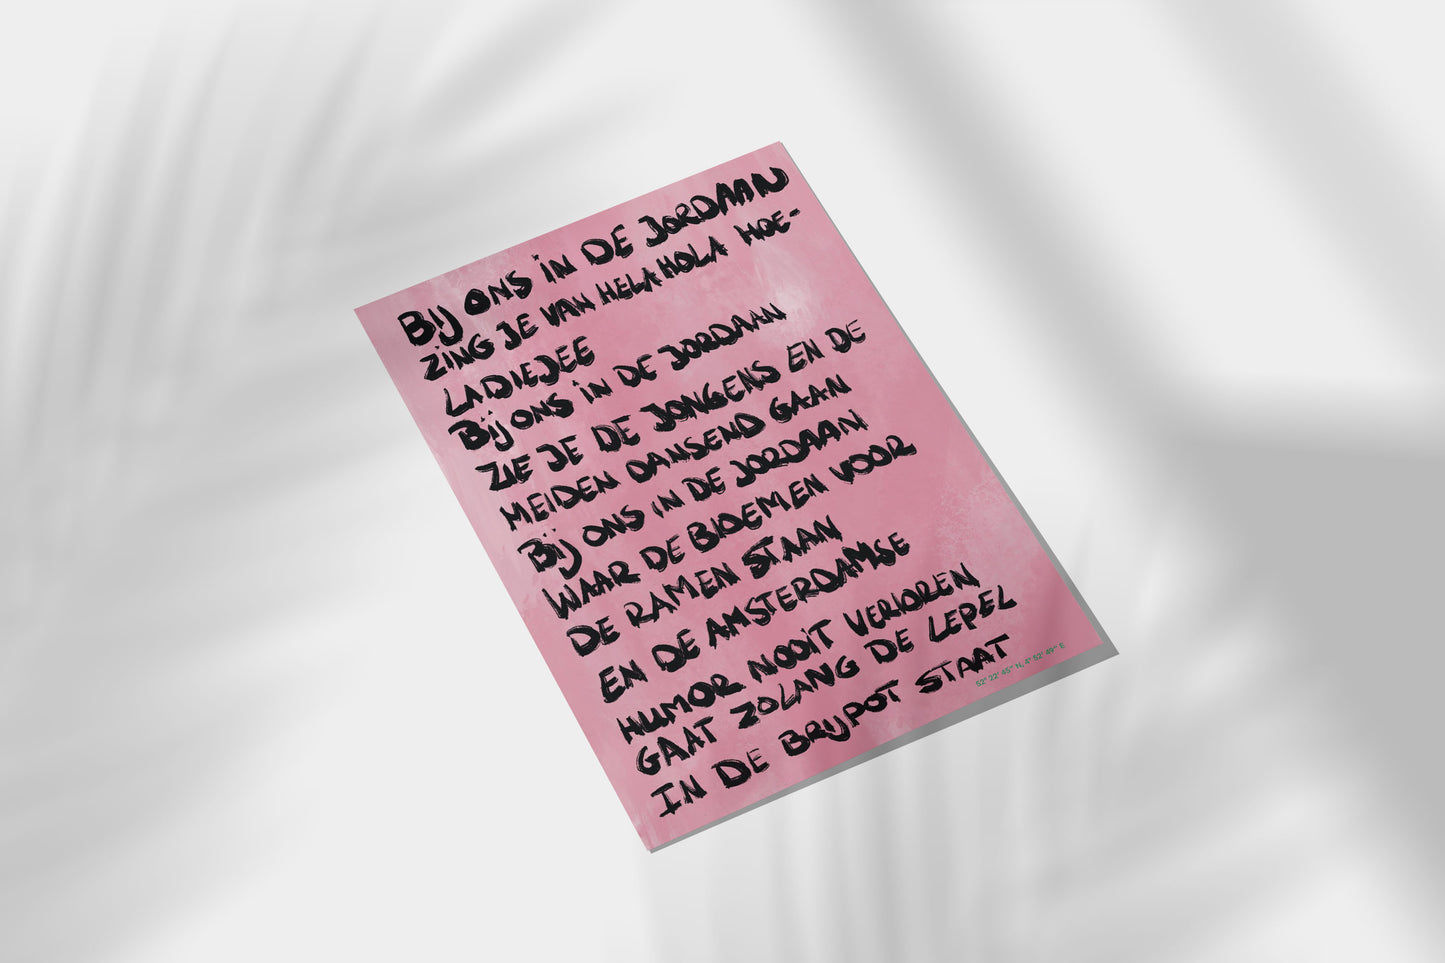 BIJ ONS IN DE JORDAAN
ZING JE VAN HELA HOLA HOE-
LADIEJEE
BIJ ONS IN DE JORDAAN
ZIE JE DE JONGENS EN DE
MEIDEN DANSEND GAAN
BIJ ONS IN DE JORDAAN
WAAR DE BLOEMEN VOOR
DE RAMEN STAAN
EN DE AMSTERDAMSE
HUMOR NOOIT VERLOREN
GAAT ZOLANG DE LEPEL
IN DE BRIJPOT STAAT
52° 22' 45" N, 4° 52' 49" E